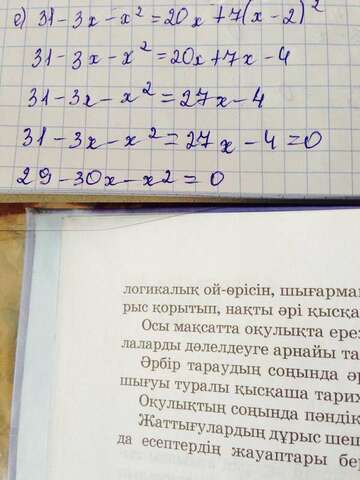 е) 31 - 3x - x² = 20x + 7(x - 2)²
31 - 3x - x² = 20x + 7x - 4
31 - 3x - x² = 27x - 4
31 - 3x - x² = 27x - 4 = 0
29 - 30x - x2 = 0
логикалық ой-өрісін, шығарма
рыс қорытып, нақты әрі қысқа
Осы мақсатта оқулықта ереж
лаларды дәлелдеуге арнайы та
Әрбір тараудың соңында әр
шығуы туралы қысқаша тарих
Оқулықтың соңында пәндік
Жаттығулардың дұрыс шеш
да есептердің жауаптары бер